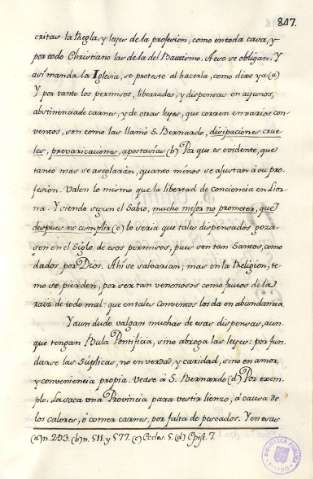 847.
critas la Regla y leyes de la profesion, como en toda casa, y
por todo Christiano las de la del Bautismo. A eso se obligan. Y
asi manda la Iglesia, se proteste al hacerla, como dixe ya (a)
Y por tanto los permisos, libertades, y dispensas en ayunos,
abstinencia de carnes, y de otras leyes, que corren en varios con-
ventos, son como las llamó S. Bernardo, disipaciones crue-
les, prevaricaciones, apostasias (b) Por que es evidente, que
tanto mas se arreglarán, quanto menos se ajustan a su pro-
fesion. Valen lo mismo que la libertad de conciencia en
Y siendo segun el Sabio, mucho mejor no prometer, que
despues no cumplir (c) lo seria que tales dispensados poza-
sen en el Siglo de esos permisos, pues son tan Santos, como
dados por Dios. Ahi se valoarian; mas en la Religion, te-
mo se pierden, por ser tan venenosos como frutos de la
raiz de todo mal: que en tales Conventos los da en abundancia
Y aun dudo valgan muchas de esas dispensas, aun-
que tengan Bula Pontificia, sino abroga las leyes: por fun-
darse las Suplicas, no en verdad, y caridad, sino en amor,
y conveniencia propia. Vease á S. Bernardo (d) Por exem-
plo. La saca una Provincia para vestir lienzo, á causa de
los calores, ó comer carnes, por falta de pescados. Y en esas
(a) n. 203. (b) n. 511. y 577. (c) Eccles. 5. (d) Epist. 7.